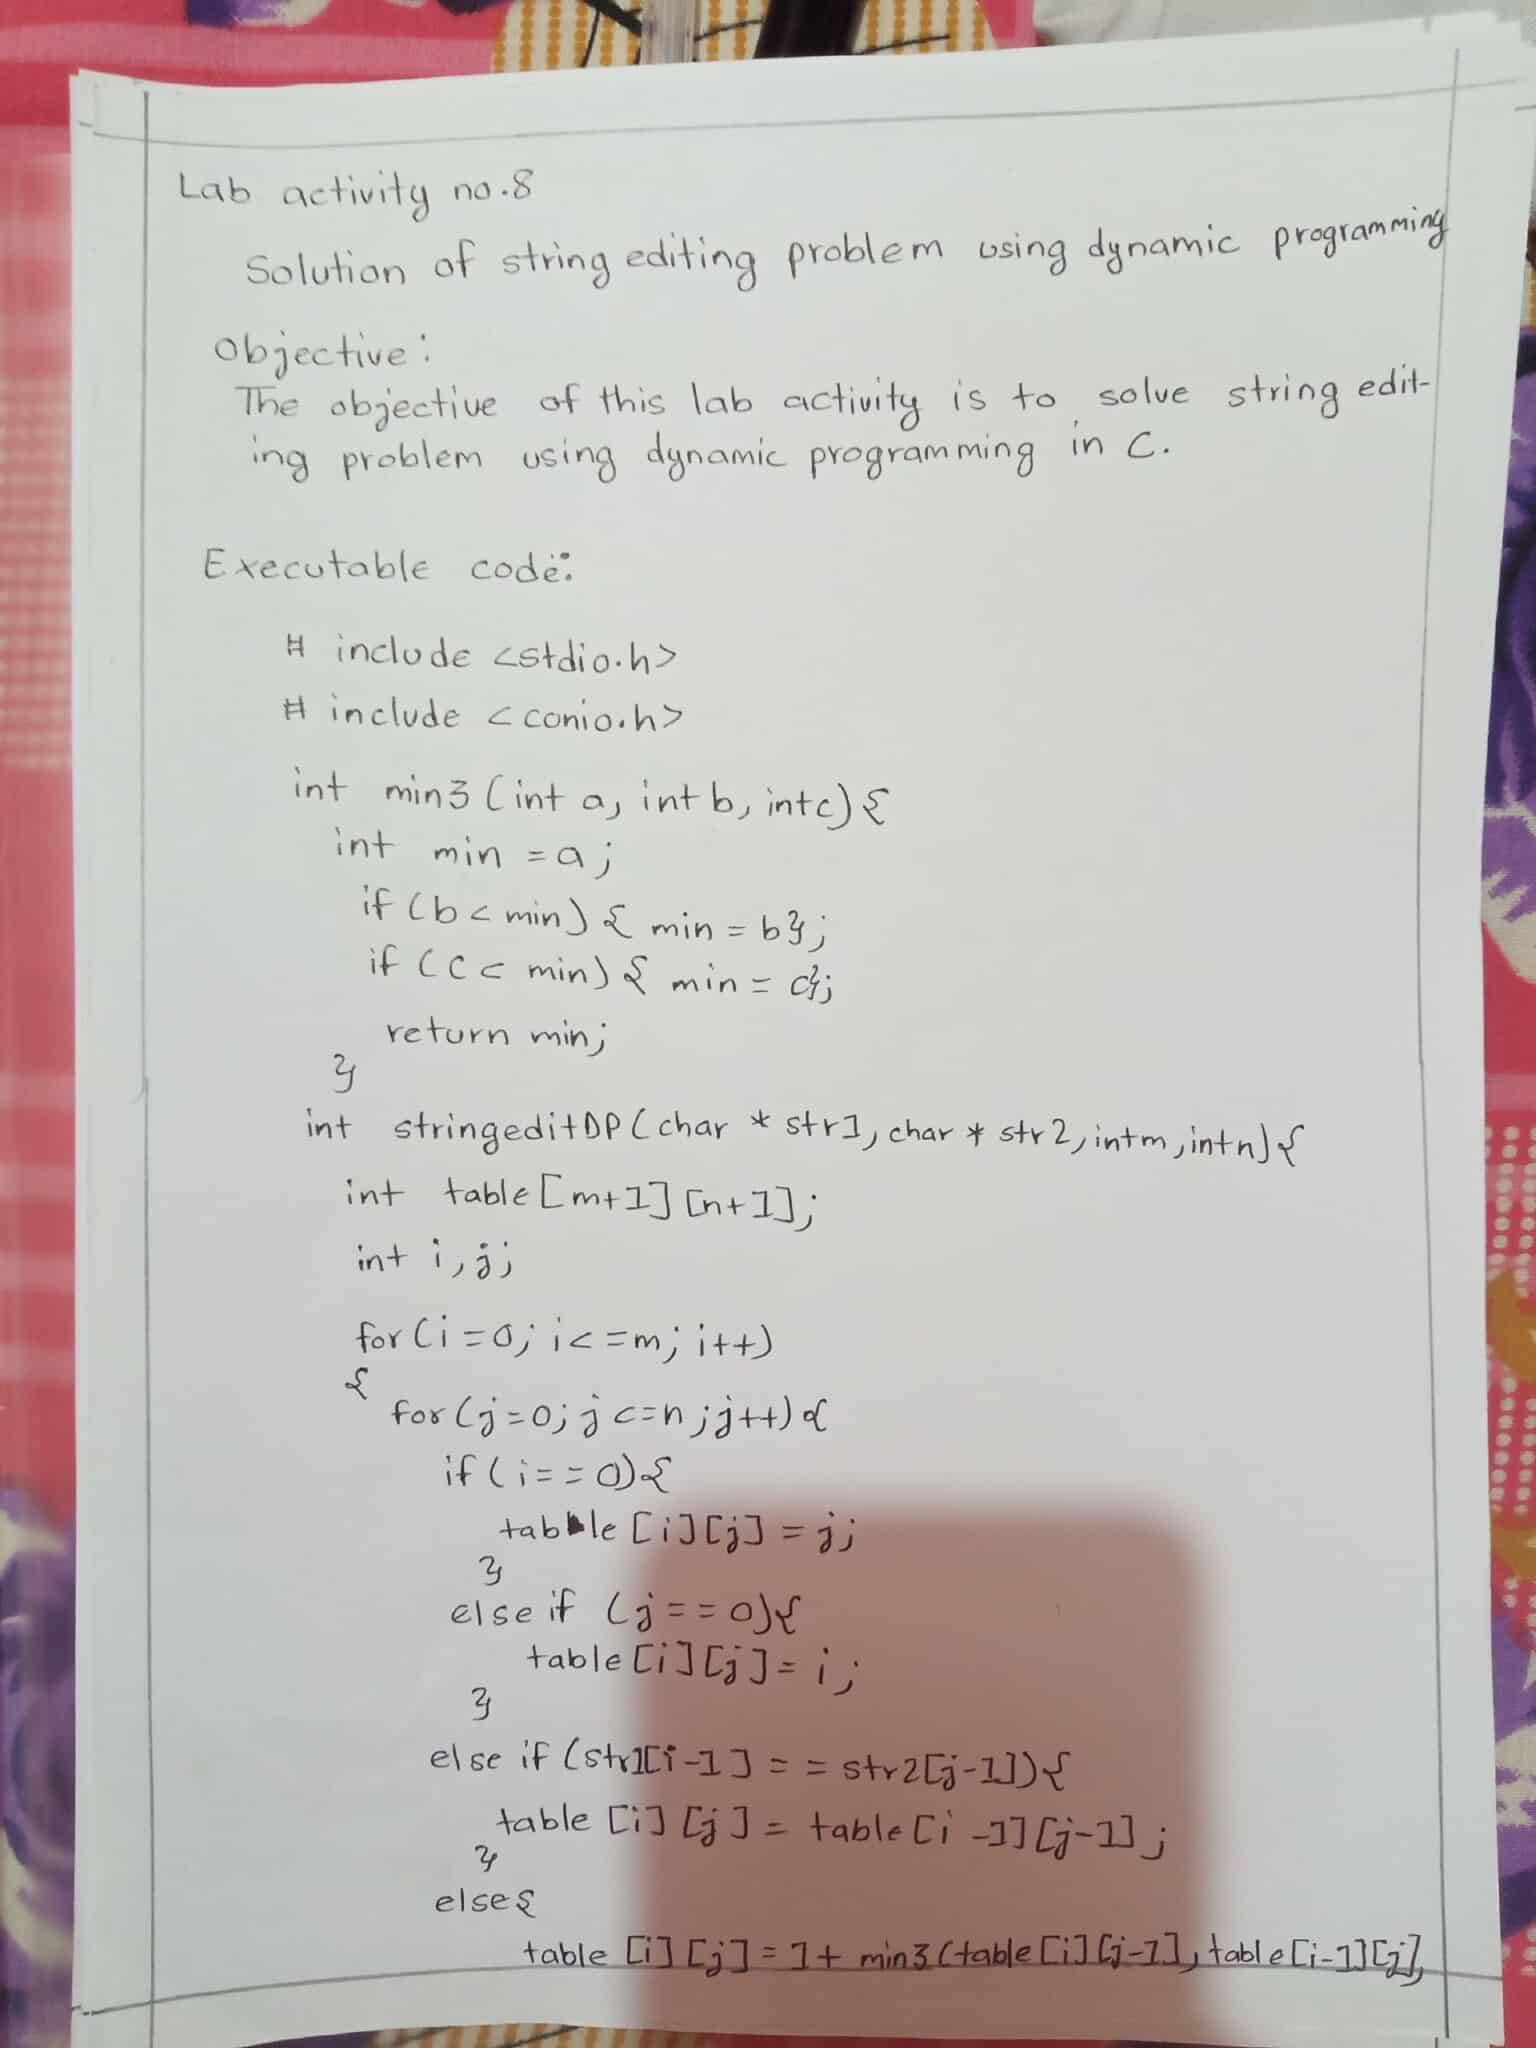 Lab activity no.8
Solution of string editing problem using dynamic programming
Objective:
The objective of this lab activity is to solve string edit-
ing problem using dynamic programming in C.
Executable code:
# include <stdio.h>
# include <conio.h>
int min3 (int a, int b, int c) {
int min = a;
if (b < min) { min = b};
if (c < min) { min = c};
return min;
}
int stringeditDP (char * str1, char * str2, int m, int n) {
int table [m+1] [n+1];
int i, j;
for (i = 0; i <= m; i++)
{
for (j = 0; j <= n; j++) {
if (i == 0) {
table [i][j] = j;
}
else if (j == 0) {
table [i][j] = i;
}
else if (str1[i-1] == str2[j-1]) {
table [i] [j] = table [i-1] [j-1];
}
else {
table [i] [j] = 1 + min3 (table [i] [j-1], table [i-1] [j],